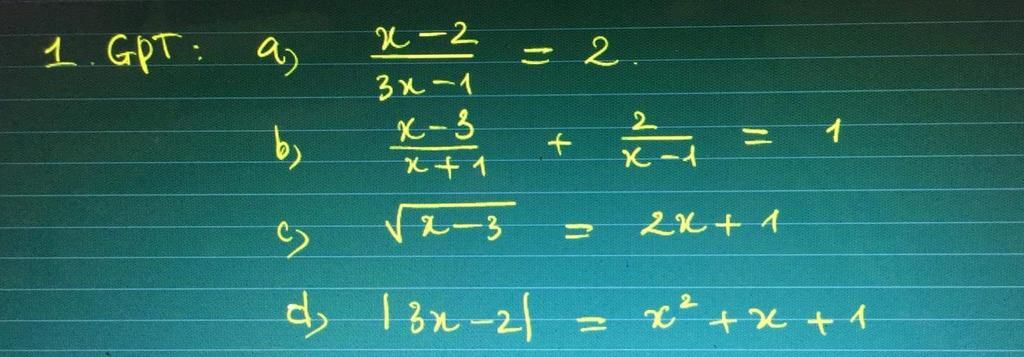 1. GPT: a) \frac{x-2}{3x-1} = 2.
b) \frac{x-3}{x+1} + \frac{2}{x-1} = 1
c) \sqrt{x-3} = 2x+1
d) |3x-2| = x^2+x+1